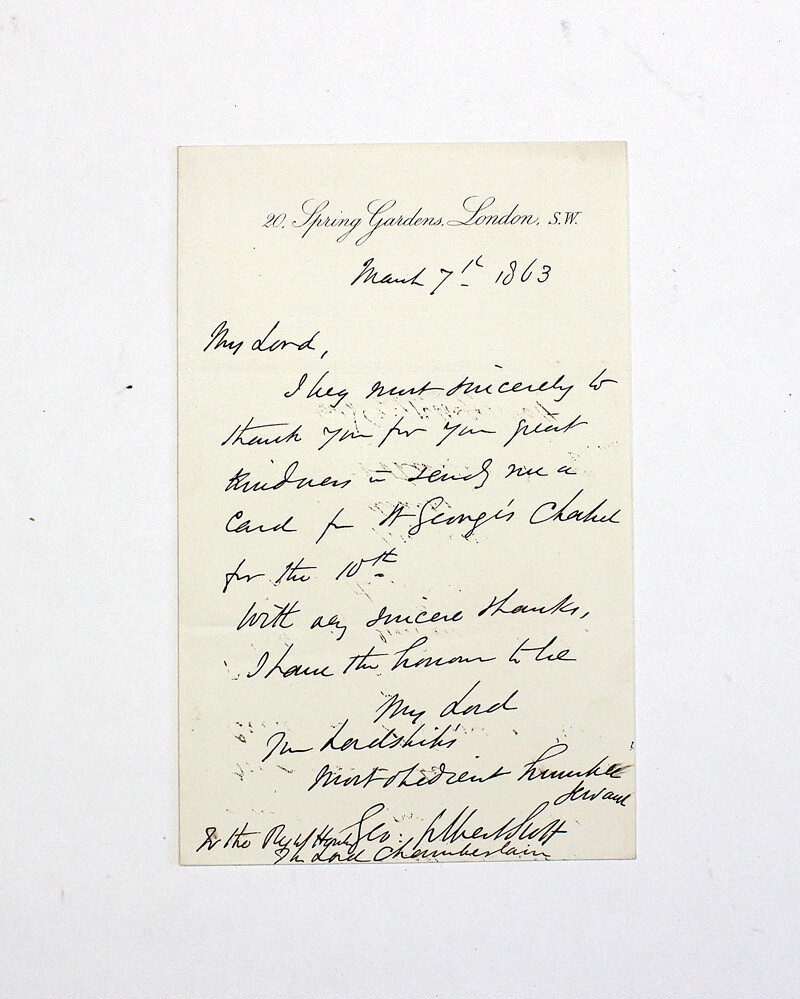 20, Spring Gardens, London, S.W.
March 7th 1863
My Lord,
I beg most sincerely to
thank you for your great
kindness in sending me a
Card for St George's Chapel
for the 10th
With very sincere thanks,
I have the honour to be
My Lord
Your Lordship's
most obedient humble
servant
Geo: Gilbert Scott
To the Right Honble
The Lord Chamberlain